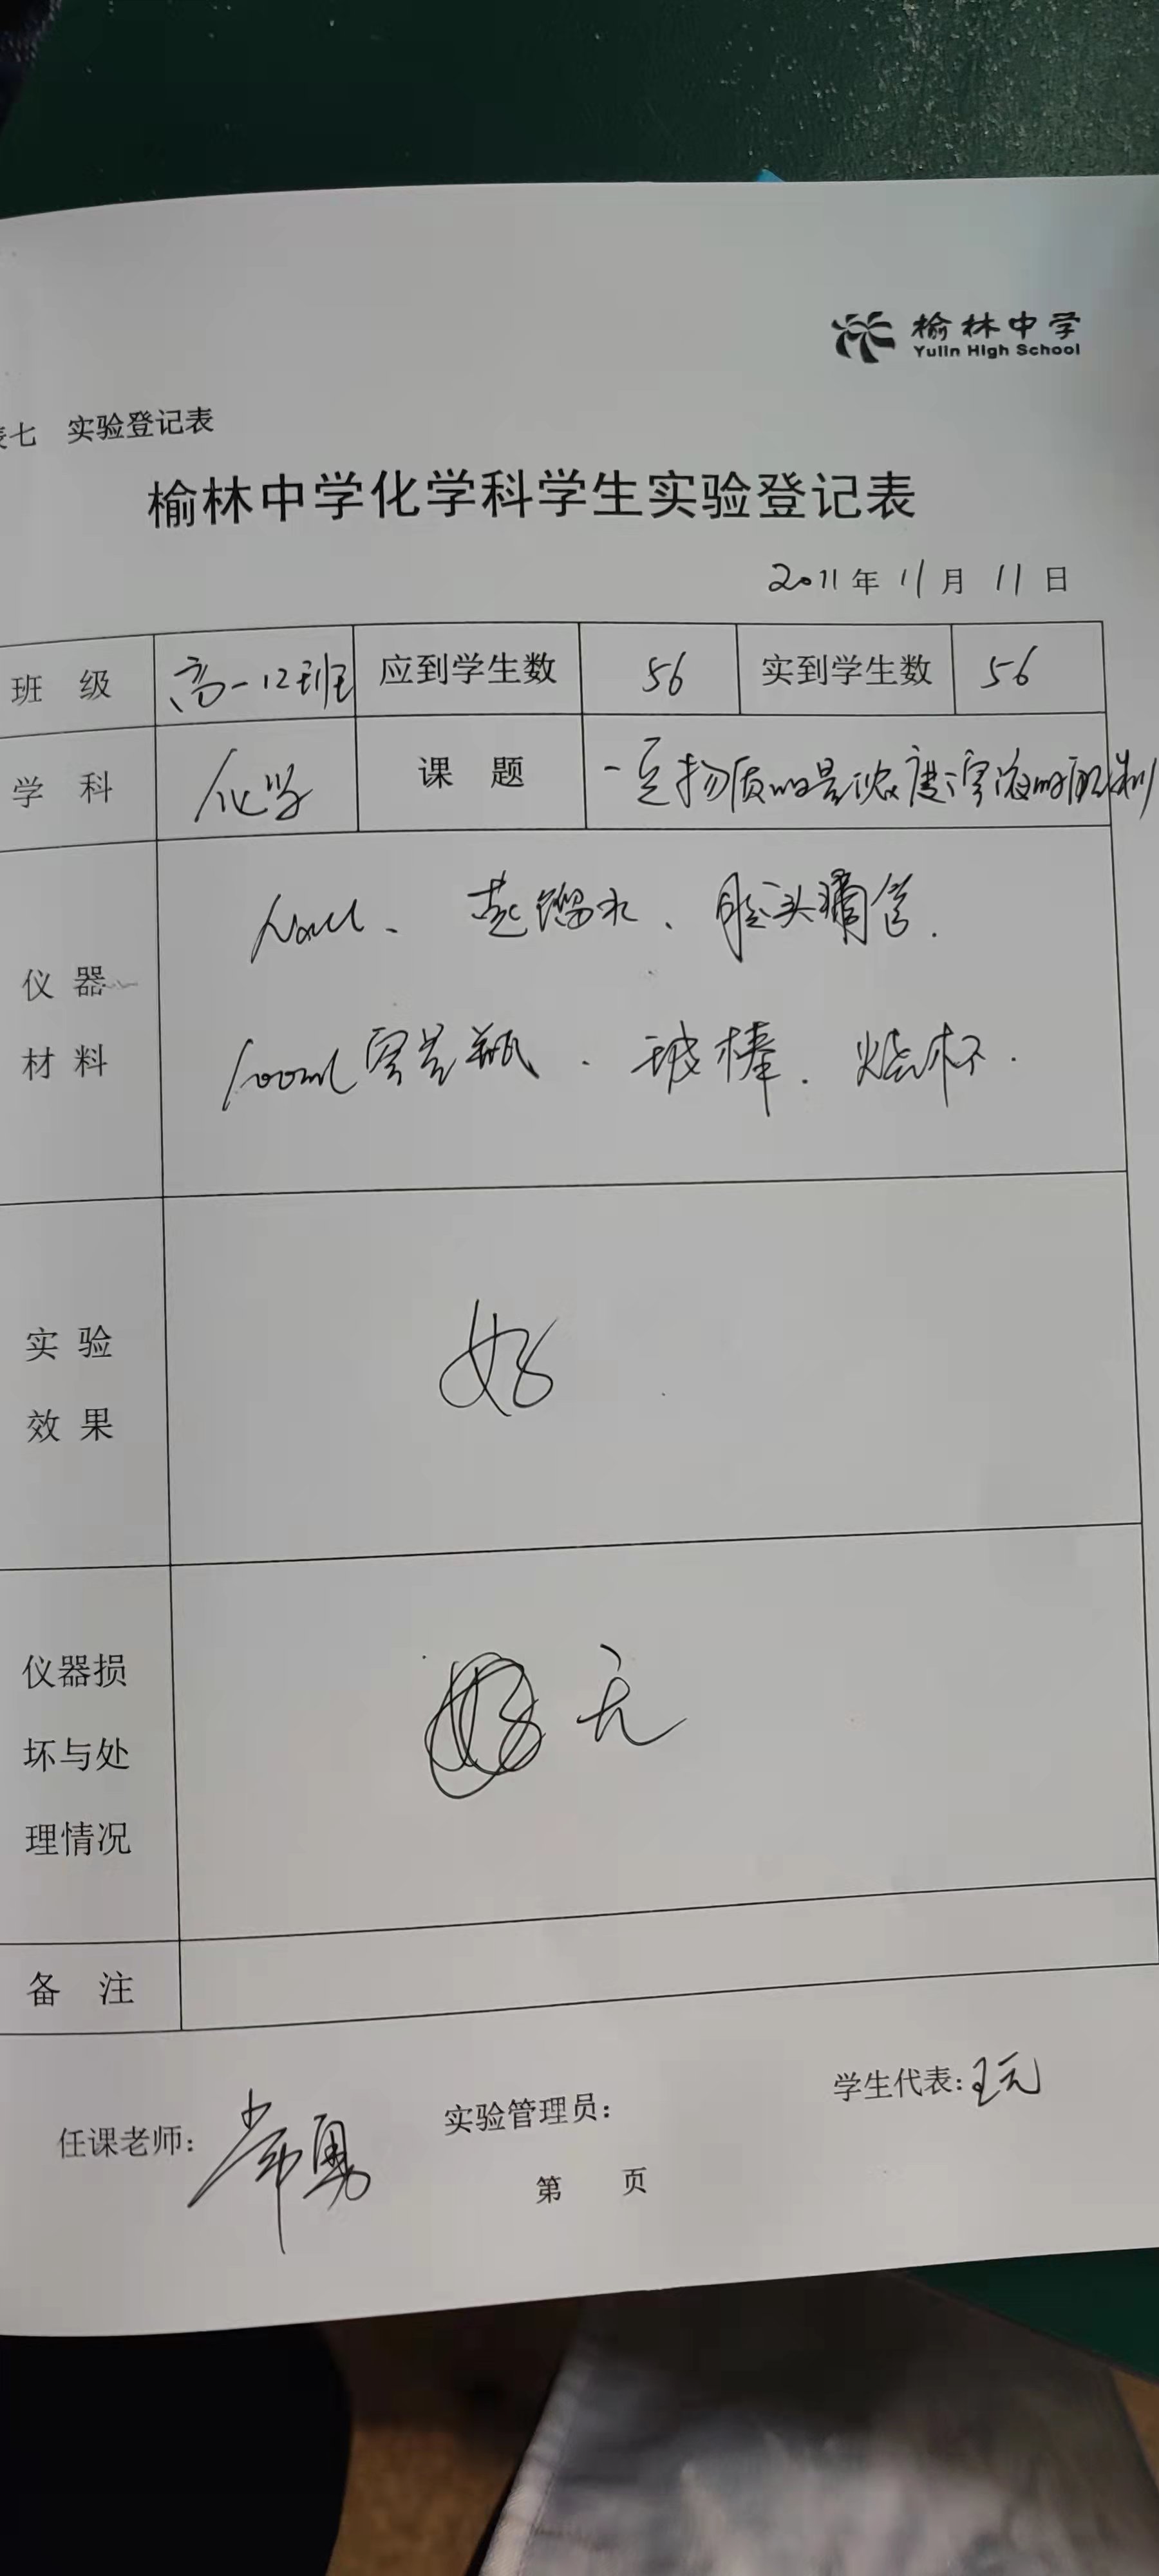 榆林中学
Yulin High School
表七 实验登记表
榆林中学化学科学生实验登记表
2011年11月11日
班 级 高一12班 应到学生数 56 实到学生数 56
学 科 化学 课 题 一定物质的量浓度溶液的配制
仪 器
材 料
NaCl、蒸馏水、胶头滴管.
100ml容量瓶.玻棒.烧杯.
实 验
效 果
好
仪器损
坏与处
理情况
无
备 注
任课老师：常勇 实验管理员： 学生代表：王元
第 页